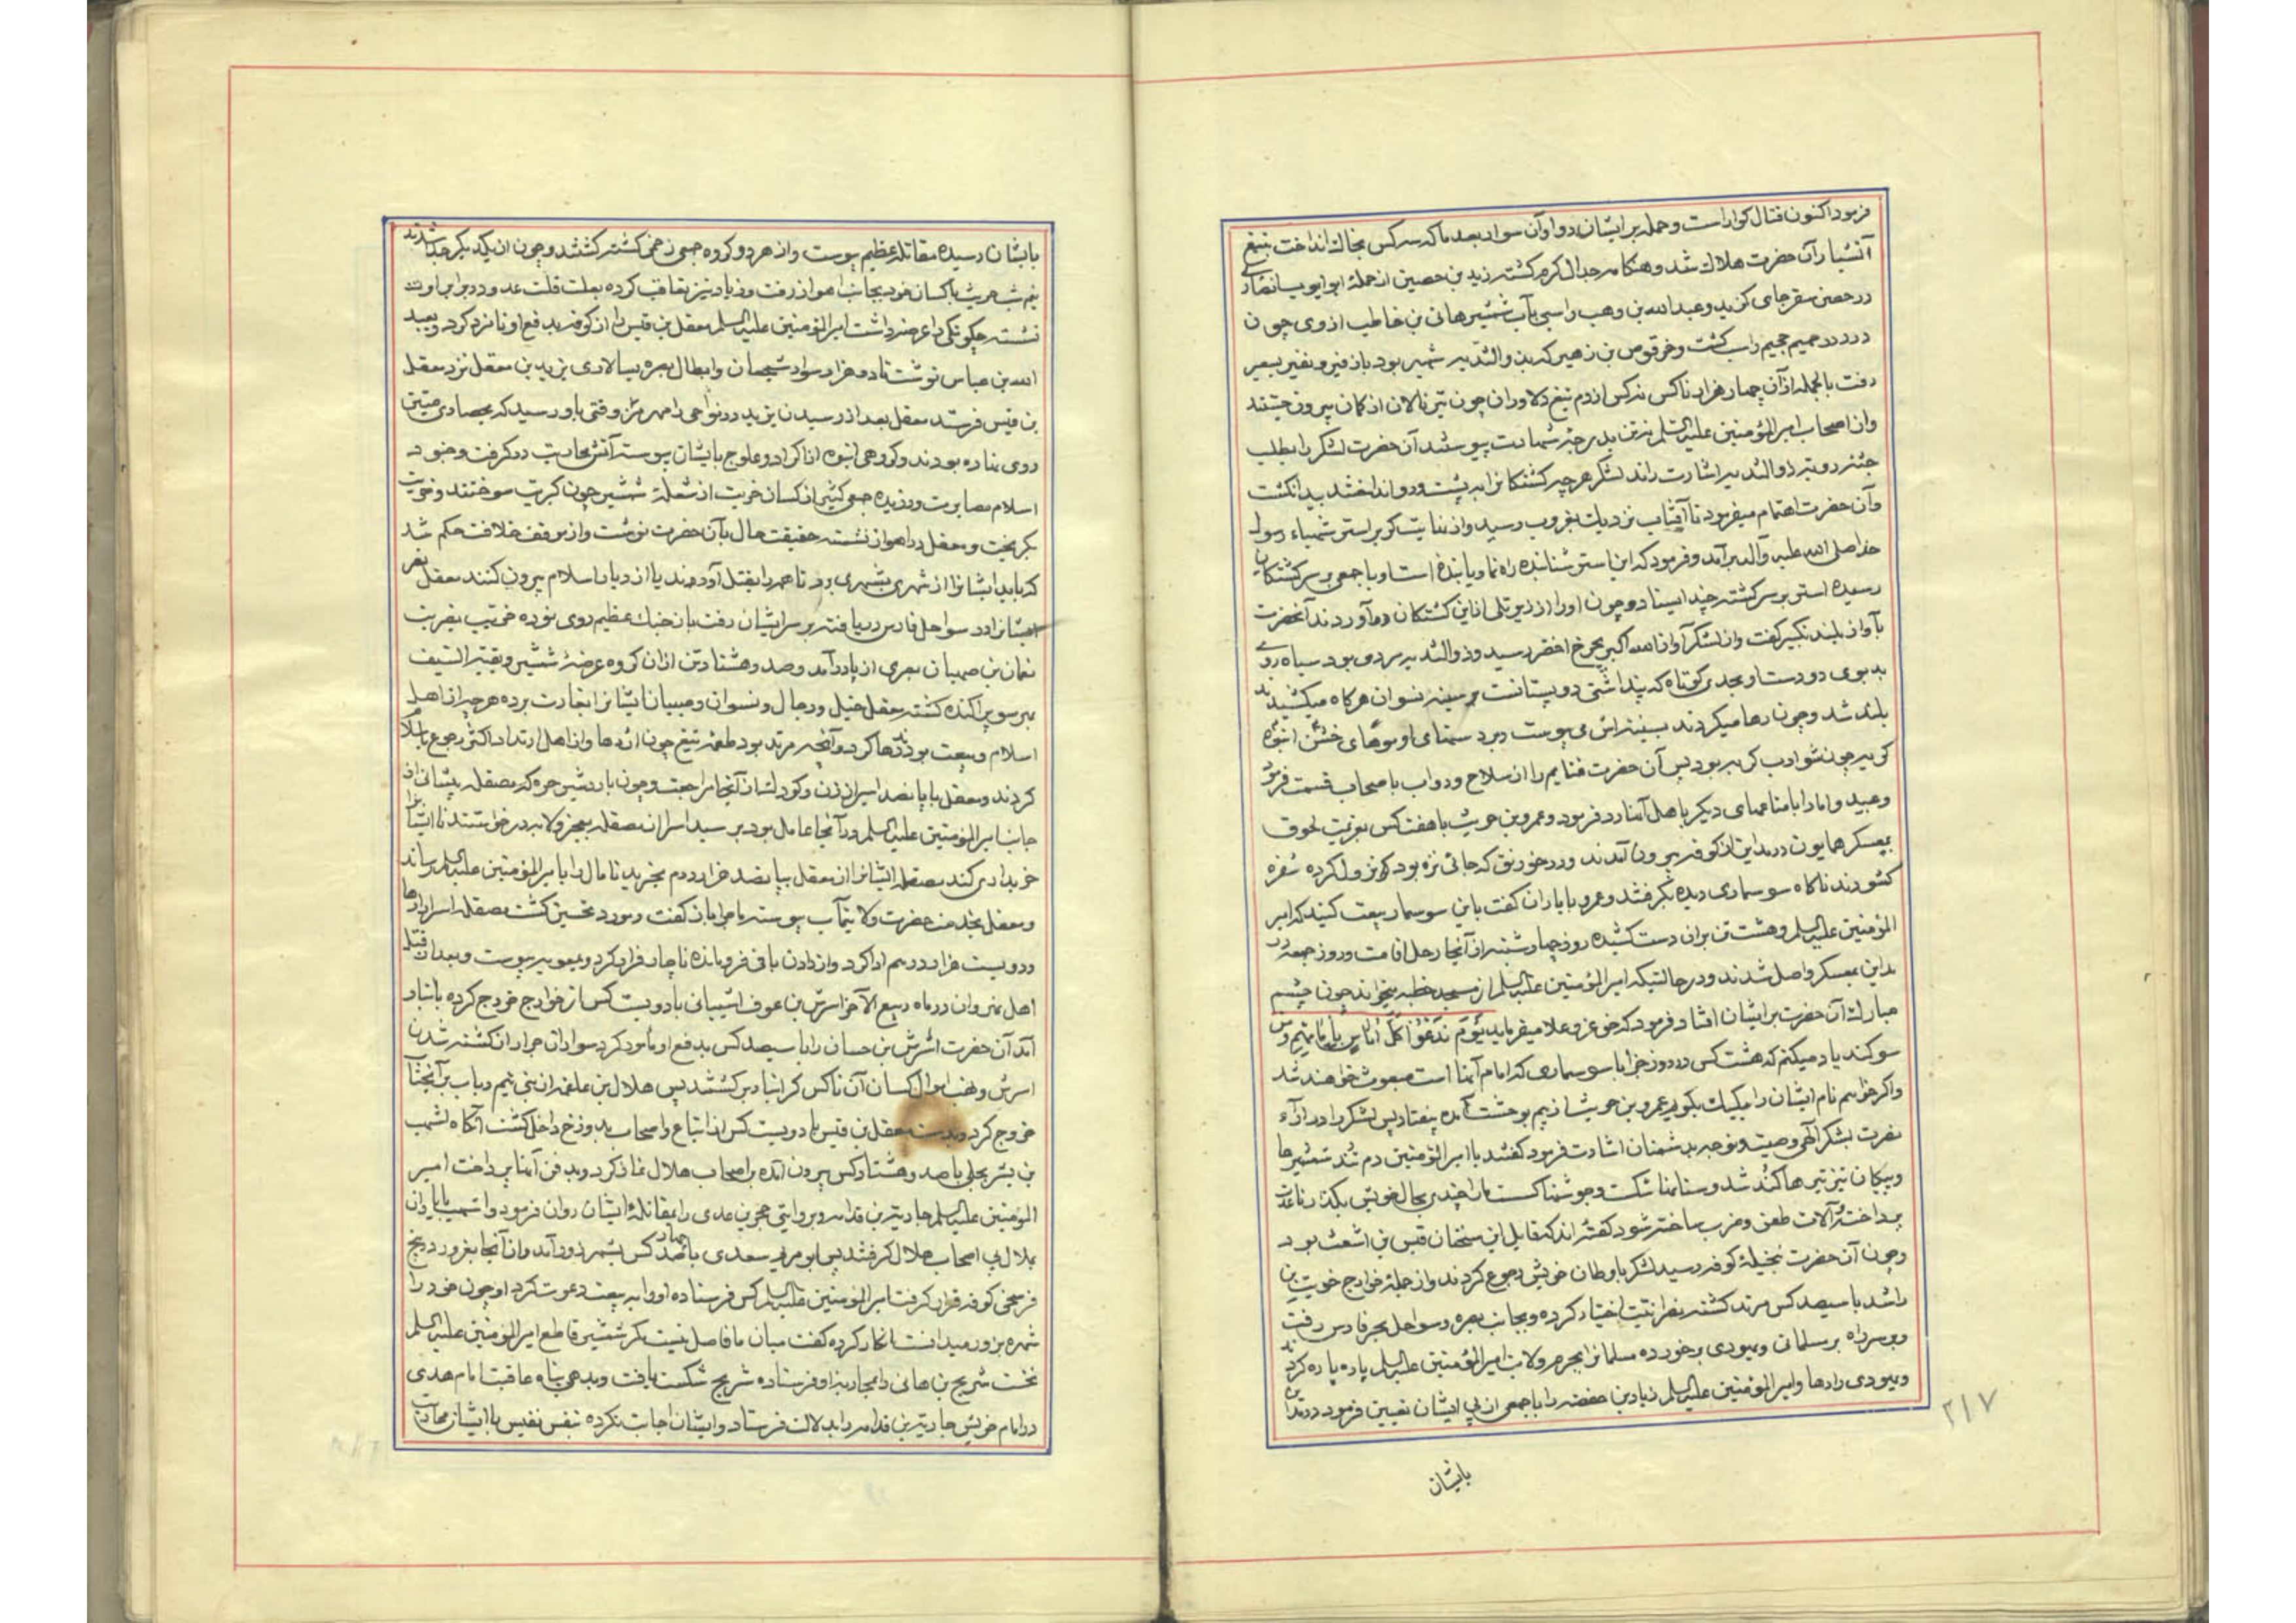 فرمود اکنون قتال کوارا است و حمله بر ایشان روا و آن سوار بعد ما که سه کس بخاک انداخت بتیغ
آتشبار آن حضرت هلاک شد و هنکامه جدال کرم کشته زید بن حصین از حمله ابو ایوب انصاری
در حصن سقر جای کزید و عبدالله بن وهب راسبی بآب شمشیر هانی بن خاطب از وی چون
درد در حمیم جحیم راسب کشت و خرقوص بن زهیر که بذوالثدیه شهیر بود با زفیر و نفیر بسعیر
رفت بالجمله از آن چهار هزار ناکس نه کس از دم تیغ دلاوران چون تیر نالان از کمان بیرون جستند
و از اصحاب امیر المؤمنین علیه السلم نه تن بدرجه شهادت پیوستند آن حضرت لشکر را بطلب
جثه ذو الثدیه اشارت راند لشکر هر چه کشتکانرا به پشت و رو انداختند پیدا نکشت
و آن حضرت اهتمام میفرمود تا آفتاب نزدیک بغروب رسید و از بنایت کر بر استر شهباء رسول
خدا صلی الله علیه و آله برآمد و فرمود که این استر شناسنده راه نما و یابنده است و با جمعی بر سر کشتکان
رسیده استر بر سر کشته چند ایستاد و چون او را از زیر تلی از این کشتکان در آوردند آنحضرت
بآواز بلند تکبیر کفت و از لشکر آواز الله اکبر بچرخ اخضر رسید و ذوالثدیه مردی بود سیاه روی
بد بوی دو دست او بحدی کوتاه که پنداشتی دو پستانست بر سینه نسوان هر کاه میکشیدند
بلند شد و چون رها میکردند بسینه اش می پیوست و بر دستهای او موهای خشن انبوه
کریه چون شوارب کربه بود پس آن حضرت غنایم را از سلاح و دواب با صحاب قسمت فرمود
و عبید و اما را با متاعهای دیکر با هل آنها رد فرمود و عمرو بن حریث با هفت کس بعزیمت لحوق
بعسکر همایون در مداین از کوفه بیرون آمدند و در خورنق که جائی نزه بود نزول کرده سفره
کشودند ناکاه سوسماری دیده بکرفتند و عمرو با یاران کفت باین سوسمار بیعت کنید که امیر
المؤمنین علیه السلم و هشت تن بران دست کشیده روز چهار شنبه از آنجا رحل اقامت و روز جمعه در
مداین بمعسکر واصل شدند و در حالتیکه امیر المؤمنین علیه السلم در مسجد خطبه میخواند چون چشم
مبارک آن حضرت بر ایشان افتاد فرمود که حق عز و علا میفرماید یَوْمَ نَدْعُوا کُلَّ اُناسٍ بِاِمامِهِم و من
سوکند یاد میکنم که هشت کس در روز جزا با سوسماری که امام آنها است مبعوث خواهند شد
و اکر خواهم نام ایشان را یک یک بکویم عمرو بن حریث از بیم بوحشت آمده بیفتاد پس لشکر را در ازآء
نصرت بشکر آلهی وصیت و توجه بدشمنان اشارت فرمود کفتند یا امیر المؤمنین دم تند شمشیرها
و پیکان تیز تیرها کند شد و سنانها شکست و جوشنها کسست ما را چندی بحال خویش بکذار تا عدت
پرداخته و آلات طعن و ضرب ساخته شود کفته اند که قایل این سخنان قیس بن اشعث بود
و چون آن حضرت نخیله کوفه رسید لشکر با وطان خویش رجوع کردند و از جمله خوارج خریت بن
راشد با سیصد کس مرتد کشته نصرانیت اختیار کرده و بجانب بصره و سواحل بحر فارس رفت
و بر سر راه بر مسلمانی و یهودی برخورده مسلمانرا بجرم ولایت امیر المؤمنین علیه السلم پاره پاره کردند
و یهودی را رها و امیر المؤمنین علیه السلم زیاد بن حفصه را با جمعی از پی ایشان تعیین فرمود در مداین
بایشان
۲۱۷
بایشان رسیده مقاتله عظیم پیوست و از هر دو کروه جمعی زخمی کشته کشتند و چون از یکدیکر جدا شدند
نیم شب خریت با کسان خود بجانب اهواز رفت و زیاد نیز تعاقب کرده بعلت قلت عدد در برابر او
نشسته چکونکی را عرضه داشت امیر المؤمنین علیه السلم معقل بن قیس را از کوفه بدفع او نامزد کرد و بعبد
الله بن عباس نوشت تا دو هزار سوار شجعان و ابطال بصره بسالاری یزید بن معقل نزد معقل
بن قیس فرستد معقل بعد از رسیدن یزید در نواحی رامهرمز وقتی باو رسید که بحصاری متین
روی نهاده بودند و کروهی انبوه از اکراد و علوج بایشان پیوسته آتش محاربت در کرفت و جنود
اسلام مصابرت ورزیده جمعی کثیر از کسان خریت از شعله شمشیر چون کبریت سوختند و خریت
بکریخت و معقل در اهواز نشسته حقیقت حال بآن حضرت نوشت و از موقف خلافت حکم شد
که باید ایشانرا از شهری بشهری برد تا همه را بقتل آورند یا از دیار اسلام بیرون کنند معقل
ایشانرا در سواحل فارس دریافته بر سر ایشان رفت باز جنک عظیم روی نموده خریت بضربت
نعمان بن صهبان بصری از پا درآمد و صد و هشتاد تن از آن کروه عرضه شمشیر و بقیة السیف
بهر سو پراکنده کشته معقل خیل و رجال و نسوان و صبیان ایشانرا بغارت برده هر چه از اهل
اسلام و بیعت بودند رها کرد و آنچه مرتد بود طعمه تیغ چون اژدها و از اهل ارتداد اکثر رجوع باسلام
کردند و معقل با پانصد اسیر از زن و کودکشان از آنجا مراجعت و چون باردشیر خوره که مصقله شیبانی از
جانب امیر المؤمنین علیه السلم در آنجا عامل بود برسید اسرا از مصقله بعجز و لابه درخواستند تا ایشانرا
خریداری کند مصقله ایشانرا از معقل بپانصد هزار درم بخرید تا مال را با میر المؤمنین علیه السلم رساند
و معقل بخدمت حضرت ولایتمآب پیوسته ماجرا باز کفت و مورد تحسین کشت مصقله اسرا را رها
و دویست هزار درهم ادا کرد و از دادن باقی فرو مانده ناچار فرار کرد و بمعویه پیوست و بعد از قتل
اهل نهروان در ماه ربیع الآخر اسرش بن عوف الشیبانی با دویست کس از خوارج خروج کرده بانبار
آمد آن حضرت اشرش بن حسان را با سیصد کس بدفع او مأمور کرد سواران جرار از کشته شدن
اسرش و نهب اموال کسان آن ناکس کرانبار برکشتند پس هلال بن علفه از بنی تیم رباب بر آنجناب
خروج کرد و بدست معقل بن قیس با دویست کس از اتباع و اصحاب بدوزخ داخل کشت آنکاه اشهب
بن بشر بجلی با صد و هشتاد کس بیرون آمده بر اصحاب هلال نماز کرد و بدفن آنها پرداخت امیر
المؤمنین علیه السلم جاریة بن قدامه و بروایتی حجر بن عدی را بمقاتله ایشان روان فرمود و اشهب با یاران
بلال پی اصحاب هلال کرفتند پس ابو مریم سعدی با چهارصد کس بشهر زور آمد و از آنجا بغرور در پنج
فرسخی کوفه قرار کرفت امیر المؤمنین علیه السلم کس فرستاده او را به بیعت دعوت کرد او چون خود را
شهره بزور میدانست انکار کرده کفت میان ما فاصل نیست مکر شمشیر قاطع امیر المؤمنین علیه السلم
نخست شریح بن هانی را بمحاربه او فرستاده شریح شکست یافت و بدهی پناه عاقبت امام هدی
در امام خویش جاریة بن قدامه را بدلالت فرستاد و ایشان اجابت نکرده بنفس نفیس با ایشان محاربت